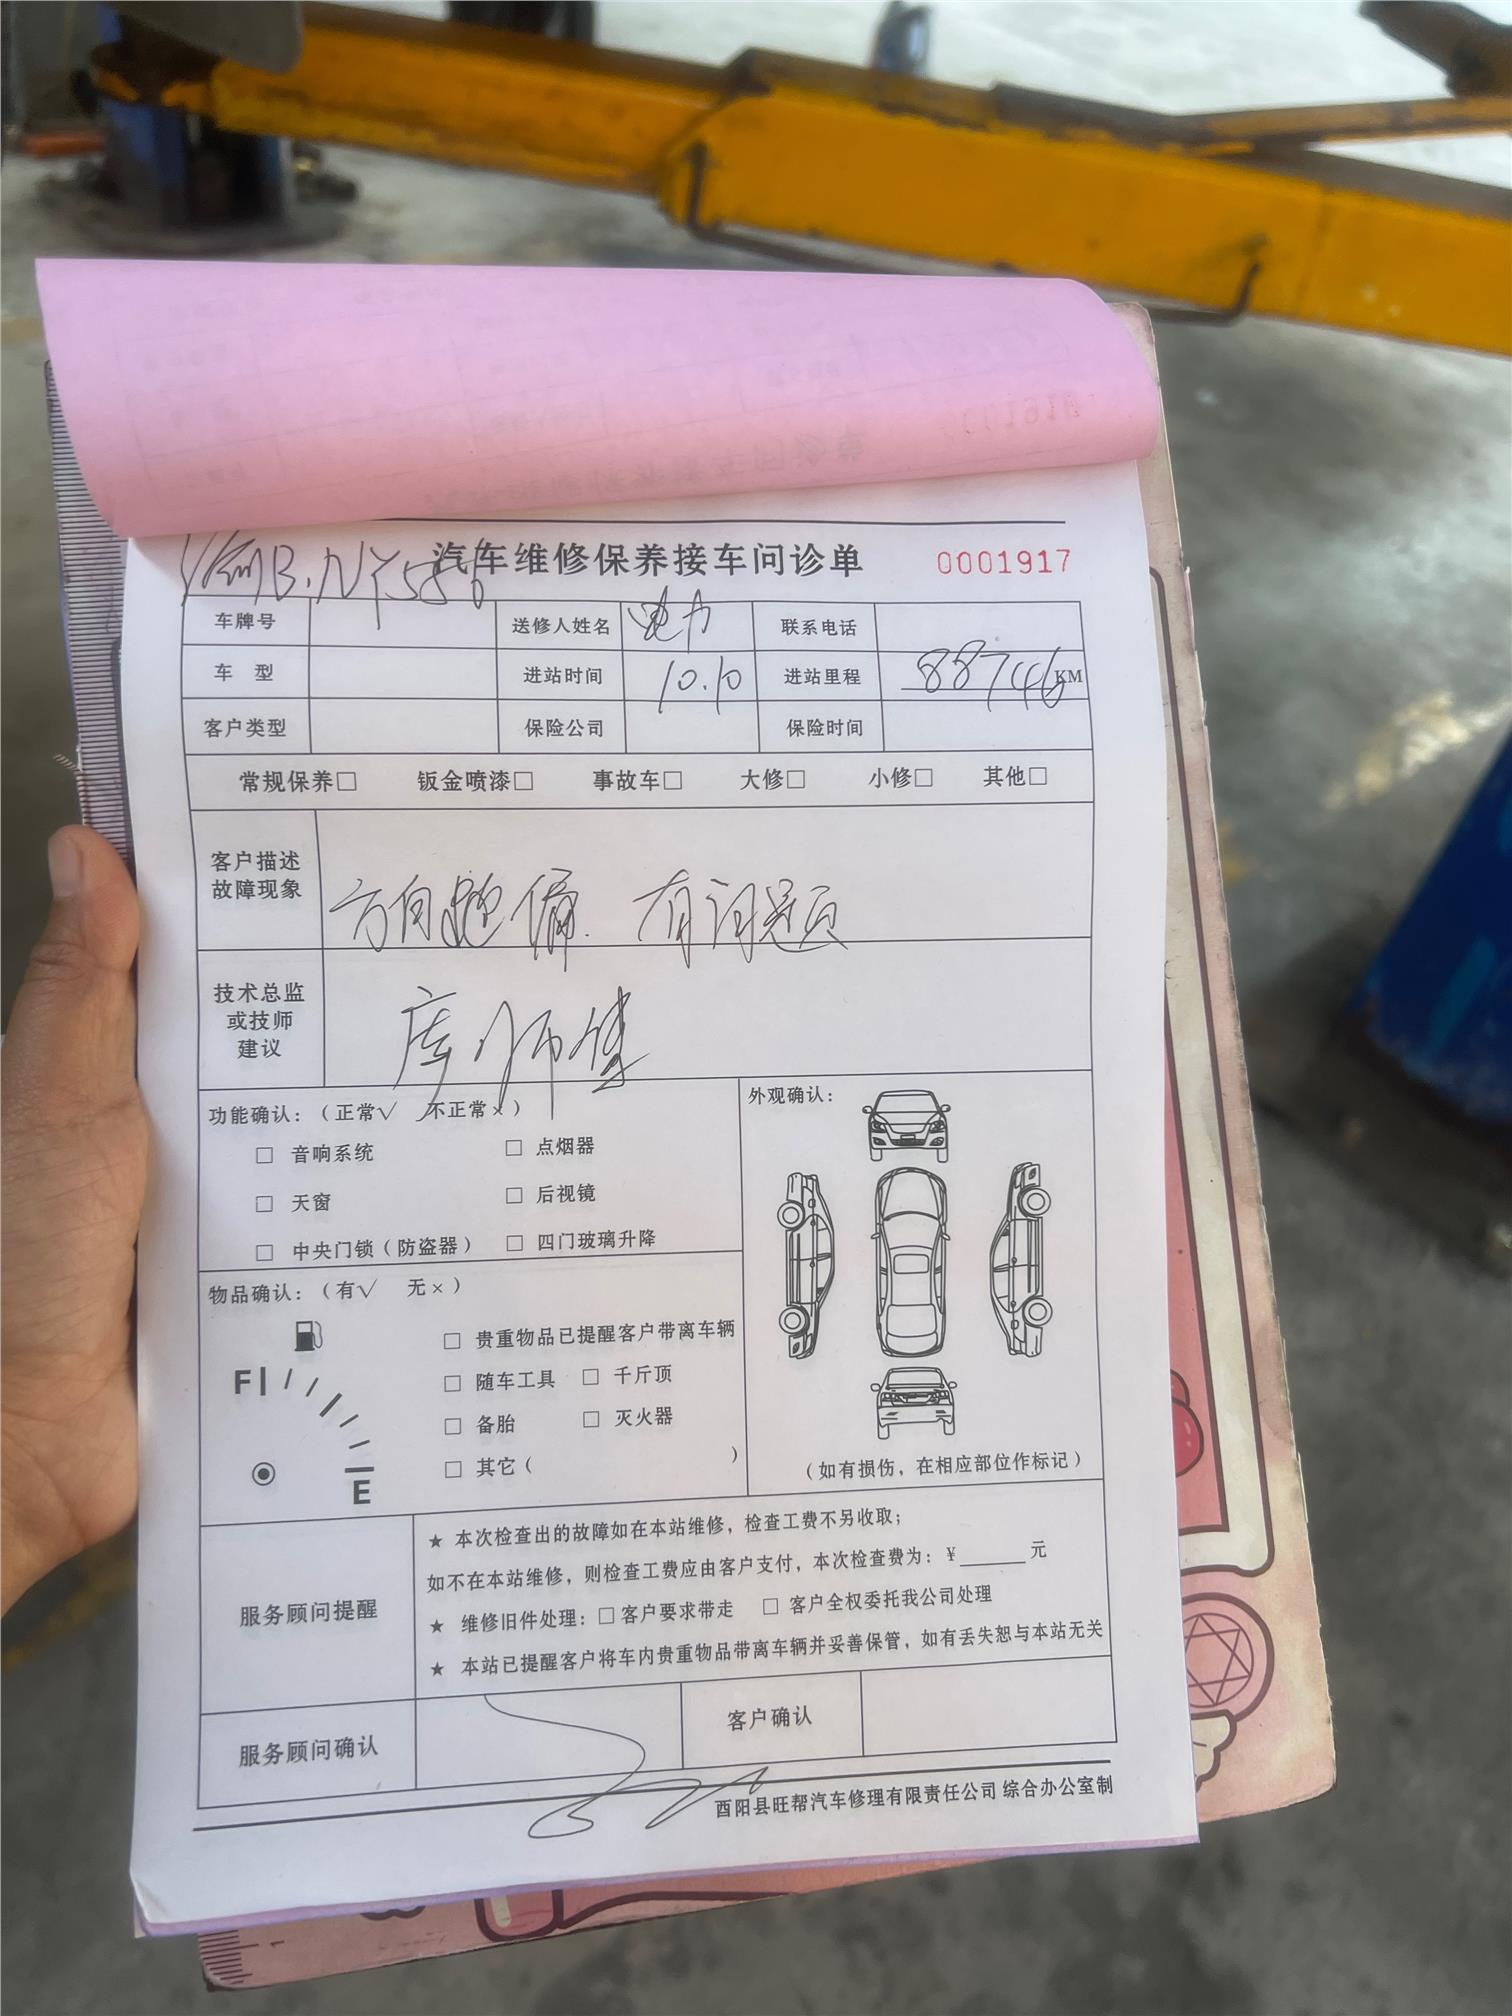 渝B.NY586
汽车维修保养接车问诊单 0001917
车牌号 送修人姓名 电力 联系电话
车 型 进站时间 10.10 进站里程 88746KM
客户类型 保险公司 保险时间
常规保养□ 钣金喷漆□ 事故车□ 大修□ 小修□ 其他□
客户描述
故障现象
方向跑偏. 有问题
技术总监
或技师
建议
师
功能确认：（正常√ 不正常×）
□ 音响系统 □ 点烟器
□ 天窗 □ 后视镜
□ 中央门锁（防盗器） □ 四门玻璃升降
外观确认：
（如有损伤，在相应部位作标记）
物品确认：（有√ 无×）
F
E
□ 贵重物品已提醒客户带离车辆
□ 随车工具 □ 千斤顶
□ 备胎 □ 灭火器
□ 其它（ ）
服务顾问提醒
★ 本次检查出的故障如在本站维修，检查工费不另收取；
如不在本站维修，则检查工费应由客户支付，本次检查费为：¥______元
★ 维修旧件处理：□客户要求带走 □ 客户全权委托我公司处理
★ 本站已提醒客户将车内贵重物品带离车辆并妥善保管，如有丢失恕与本站无关
服务顾问确认 客户确认
酉阳县旺帮汽车修理有限责任公司 综合办公室制